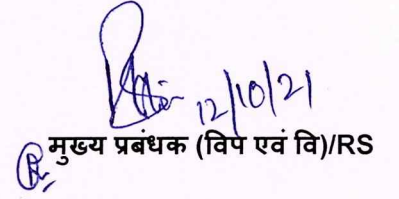 12/10/21
मुख्य प्रबंधक (विप एवं वि)/RS